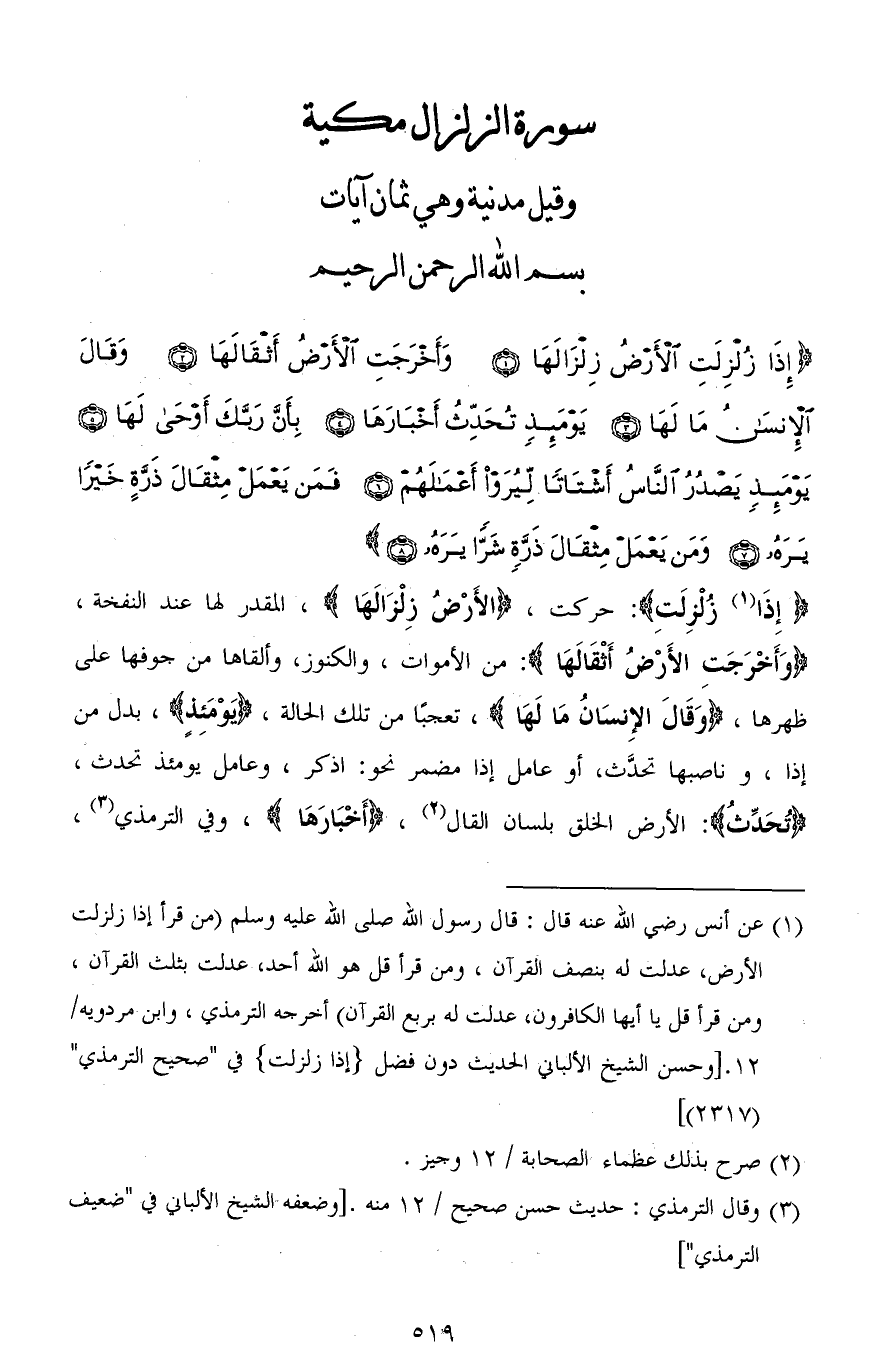 سورة الزلزال مكية
وقيل مدنية وهي ثمان آيات
بسم الله الرحمن الرحيم
﴿ إِذَا زُلْزِلَتِ ٱلْأَرْضُ زِلْزَالَهَا ۝١ وَأَخْرَجَتِ ٱلْأَرْضُ أَثْقَالَهَا ۝٢ وَقَالَ
ٱلْإِنسَٰنُ مَا لَهَا ۝٣ يَوْمَئِذٍ تُحَدِّثُ أَخْبَارَهَا ۝٤ بِأَنَّ رَبَّكَ أَوْحَىٰ لَهَا ۝٥
يَوْمَئِذٍ يَصْدُرُ ٱلنَّاسُ أَشْتَاتًا لِّيُرَوْا۟ أَعْمَٰلَهُمْ ۝٦ فَمَن يَعْمَلْ مِثْقَالَ ذَرَّةٍ خَيْرًا
يَرَهُۥ ۝٧ وَمَن يَعْمَلْ مِثْقَالَ ذَرَّةٍ شَرًّا يَرَهُۥ ۝٨ ﴾
﴿ إِذَا(١) زُلْزِلَتِ﴾: حركت ، ﴿الأَرْضُ زِلْزَالَهَا ﴾ ، المقدر لها عند النفخة ،
﴿وَأَخْرَجَتِ الأَرْضُ أَثْقَالَهَا ﴾: من الأموات ، والكنوز، وألقاها من جوفها على
ظهرها ، ﴿وَقَالَ الإِنسَانُ مَا لَهَا ﴾ ، تعجبًا من تلك الحالة ، ﴿يَوْمَئِذٍ﴾ ، بدل من
إذا ، و ناصبها تحدَّث، أو عامل إذا مضمر نحو: اذكر ، وعامل يومئذ تحدث ،
﴿تُحَدِّثُ﴾: الأرض الخلق بلسان القال(٢) ، ﴿أَخْبَارَهَا ﴾ ، وفي الترمذي(٣) ،
(١) عن أنس رضي الله عنه قال : قال رسول الله صلى الله عليه وسلم (من قرأ إذا زلزلت
الأرض، عدلت له بنصف القرآن ، ومن قرأ قل هو الله أحد، عدلت بثلث القرآن ،
ومن قرأ قل يا أيها الكافرون، عدلت له بربع القرآن) أخرجه الترمذي ، وابن مردويه/
١٢.[وحسن الشيخ الألباني الحديث دون فضل {إذا زلزلت} في "صحيح الترمذي"
(٢٣١٧)]
(٢) صرح بذلك عظماء الصحابة / ١٢ وجيز .
(٣) وقال الترمذي : حديث حسن صحيح / ١٢ منه .[وضعفه الشيخ الألباني في "ضعيف
الترمذي"]
٥١٩